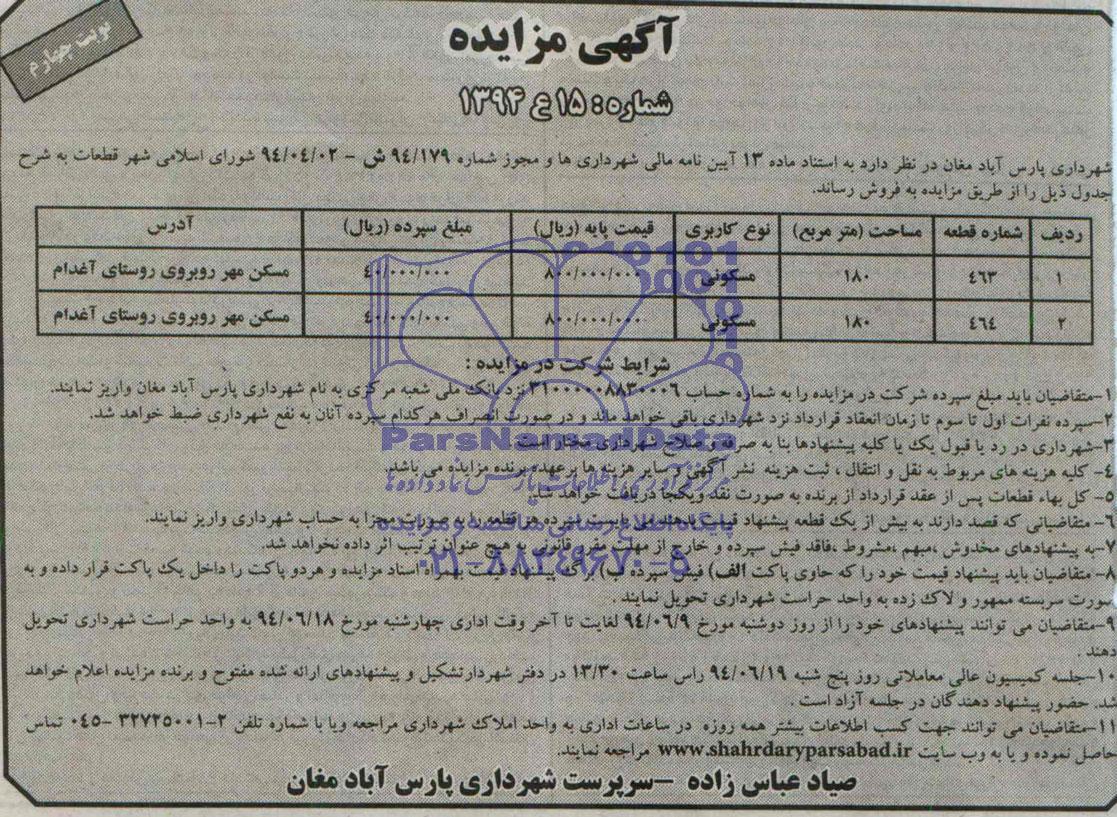 نوبت چهارم
آگهی مزایده
شماره: ۱۵ ع ۱۳۹۴
شهرداری پارس آباد مغان در نظر دارد به استناد ماده ۱۳ آیین نامه مالی شهرداری ها و مجوز شماره ۹٤/۱۷۹ ش – ۹٤/۰٤/۰۲ شورای اسلامی شهر قطعات به شرح
جدول ذیل را از طریق مزایده به فروش رساند.
ردیف شماره قطعه مساحت (متر مربع) نوع کاربری قیمت پایه (ریال) مبلغ سپرده (ریال) آدرس
۱ ٤٦۳ ۱۸۰ مسکونی ۸۰۰/۰۰۰/۰۰۰ ٤۰/۰۰۰/۰۰۰ مسکن مهر روبروی روستای آغدام
۲ ٤٦٤ ۱۸۰ مسکونی ۸۰۰/۰۰۰/۰۰۰ ٤۰/۰۰۰/۰۰۰ مسکن مهر روبروی روستای آغدام
شرایط شرکت در مزایده :
۱–متقاضیان باید مبلغ سپرده شرکت در مزایده را به شماره حساب ۳۱۰۰۰۰۰۰۸۸۳۰۰۰٦ نزد بانک ملی شعبه مرکزی به نام شهرداری پارس آباد مغان واریز نمایند.
۲–سپرده نفرات اول تا سوم تا زمان انعقاد قرارداد نزد شهرداری باقی خواهد ماند و در صورت انصراف هرکدام سپرده آنان به نفع شهرداری ضبط خواهد شد.
۳–شهرداری در رد یا قبول یک یا کلیه پیشنهادها بنا به صرفه و صلاح شهرداری مختار است.
٤– کلیه هزینه های مربوط به نقل و انتقال ، ثبت هزینه نشر آگهی و سایر هزینه ها برعهده برنده مزایده می باشد.
٥– کل بهاء قطعات پس از عقد قرارداد از برنده به صورت نقد ویکجا دریافت خواهد شد.
٦– متقاضیانی که قصد دارند به بیش از یک قطعه پیشنهاد قیمت بدهند می بایست سپرده هر قطعه را به صورت مجزا به حساب شهرداری واریز نمایند.
۷–به پیشنهادهای مخدوش ،مبهم ،مشروط ،فاقد فیش سپرده و خارج از مهلت مقرر قانونی به هیچ عنوان ترتیب اثر داده نخواهد شد.
۸– متقاضیان باید پیشنهاد قیمت خود را که حاوی پاکت الف) فیش سپرده ب) برگه پیشنهاد قیمت بهمراه اسناد مزایده و هردو پاکت را داخل یک پاکت قرار داده و به
صورت سربسته ممهور و لاک زده به واحد حراست شهرداری تحویل نمایند .
۹–متقاضیان می توانند پیشنهادهای خود را از روز دوشنبه مورخ ۹٤/۰٦/۹ لغایت تا آخر وقت اداری چهارشنبه مورخ ۹٤/۰٦/۱۸ به واحد حراست شهرداری تحویل
دهند .
۱۰–جلسه کمیسیون عالی معاملاتی روز پنج شنبه ۹٤/۰٦/۱۹ راس ساعت ۱۳/۳۰ در دفتر شهردارتشکیل و پیشنهادهای ارائه شده مفتوح و برنده مزایده اعلام خواهد
شد. حضور پیشنهاد دهندگان در جلسه آزاد است .
۱۱–متقاضیان می توانند جهت کسب اطلاعات بیشتر همه روزه در ساعات اداری به واحد املاک شهرداری مراجعه ویا با شماره تلفن ۲–۳۲۷۲٥۰۰۱ –۰٤٥ تماس
حاصل نموده و یا به وب سایت www.shahrdaryparsabad.ir مراجعه نمایند.
صیاد عباس زاده –سرپرست شهرداری پارس آباد مغان
ParsNamadData
پایگاه اطلاع رسانی مناقصه و مزایده
۰۲۱-۸۸۳۴۹۶۷۰-۵